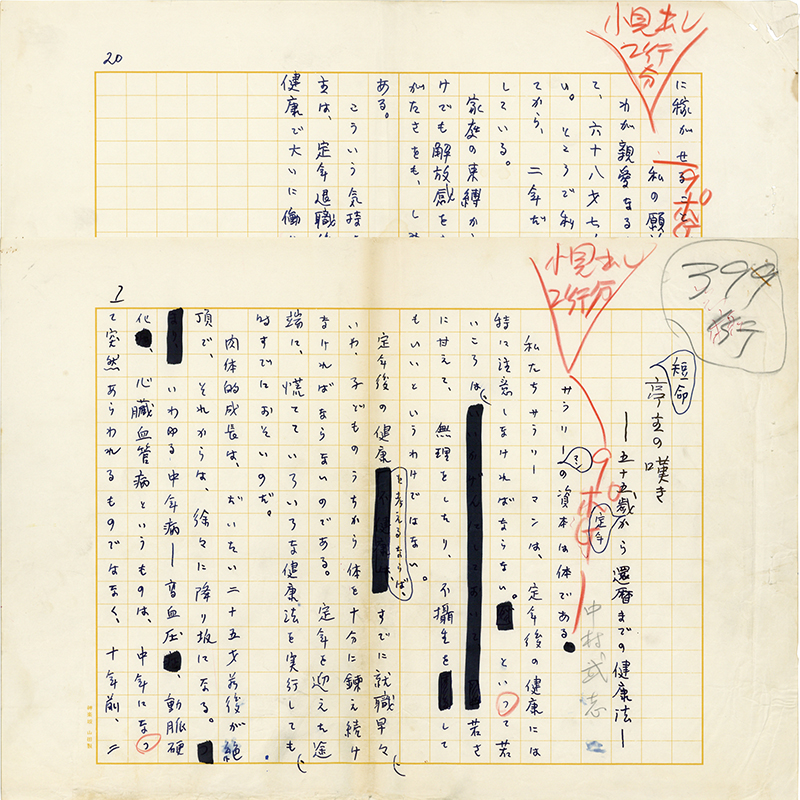 20
小見出し
2行分
9ポ
に稼がせること
私の願
わが親愛なる
て、六十八才七
い。ところで私
てから、二年だ
している。
家庭の束縛か
けでも解放感を
がたさをも、し
ある。
こういう気持
主は、定年退職
健康で大いに働
1
小見出し
2行分
399行
短命
亭主の嘆き
―五十五歳から還暦までの健康法―
定年
中村武志
9ポ
サラリーマンの資本は体である
私たちサラリーマンは、定年後の健康には
特に注意しなければならない。といって若
いころは、若さ
に甘えて、無理をしたり、不摂生をして
もいいというわけではない。
定年後の健康を考えるならば、すでに就職早々
いわ、子どものうちから体を十分に鍛え続け
なければならないのである。定年を迎えた途
端に、慌てていろいろな健康法を実行しても、
時すでにおそいのだ。
肉体的成長は、だいたい二十五才前後が絶
頂で、それからは、徐々に降り坂になる。
いわゆる中年病―高血圧、動脈硬
化、心臓血管病というものは、中年になっ
て突然あらわれるものではなく、十年前、二